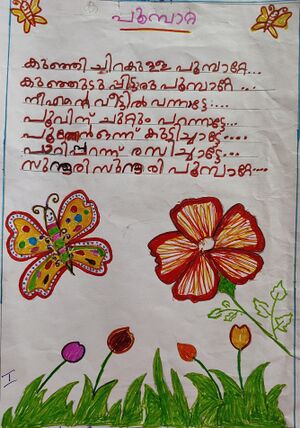 പൂമ്പാറ്റ
കുഞ്ഞിച്ചിറകുള്ള പൂമ്പാറ്റേ...
കുഞ്ഞുടുപ്പിട്ടൊരു പൂമ്പാറ്റേ ...
നീയെൻ വീട്ടിൽ വന്നാട്ടേ...
പൂവിന് ചുറ്റും പറന്നാട്ടേ...
പൂന്തേൻ ഒന്ന് കുടിച്ചാട്ടേ....
പാറിപ്പറന്ന് രസിച്ചാട്ടേ....
സുന്ദരി സുന്ദരി പൂമ്പാറ്റേ....
I